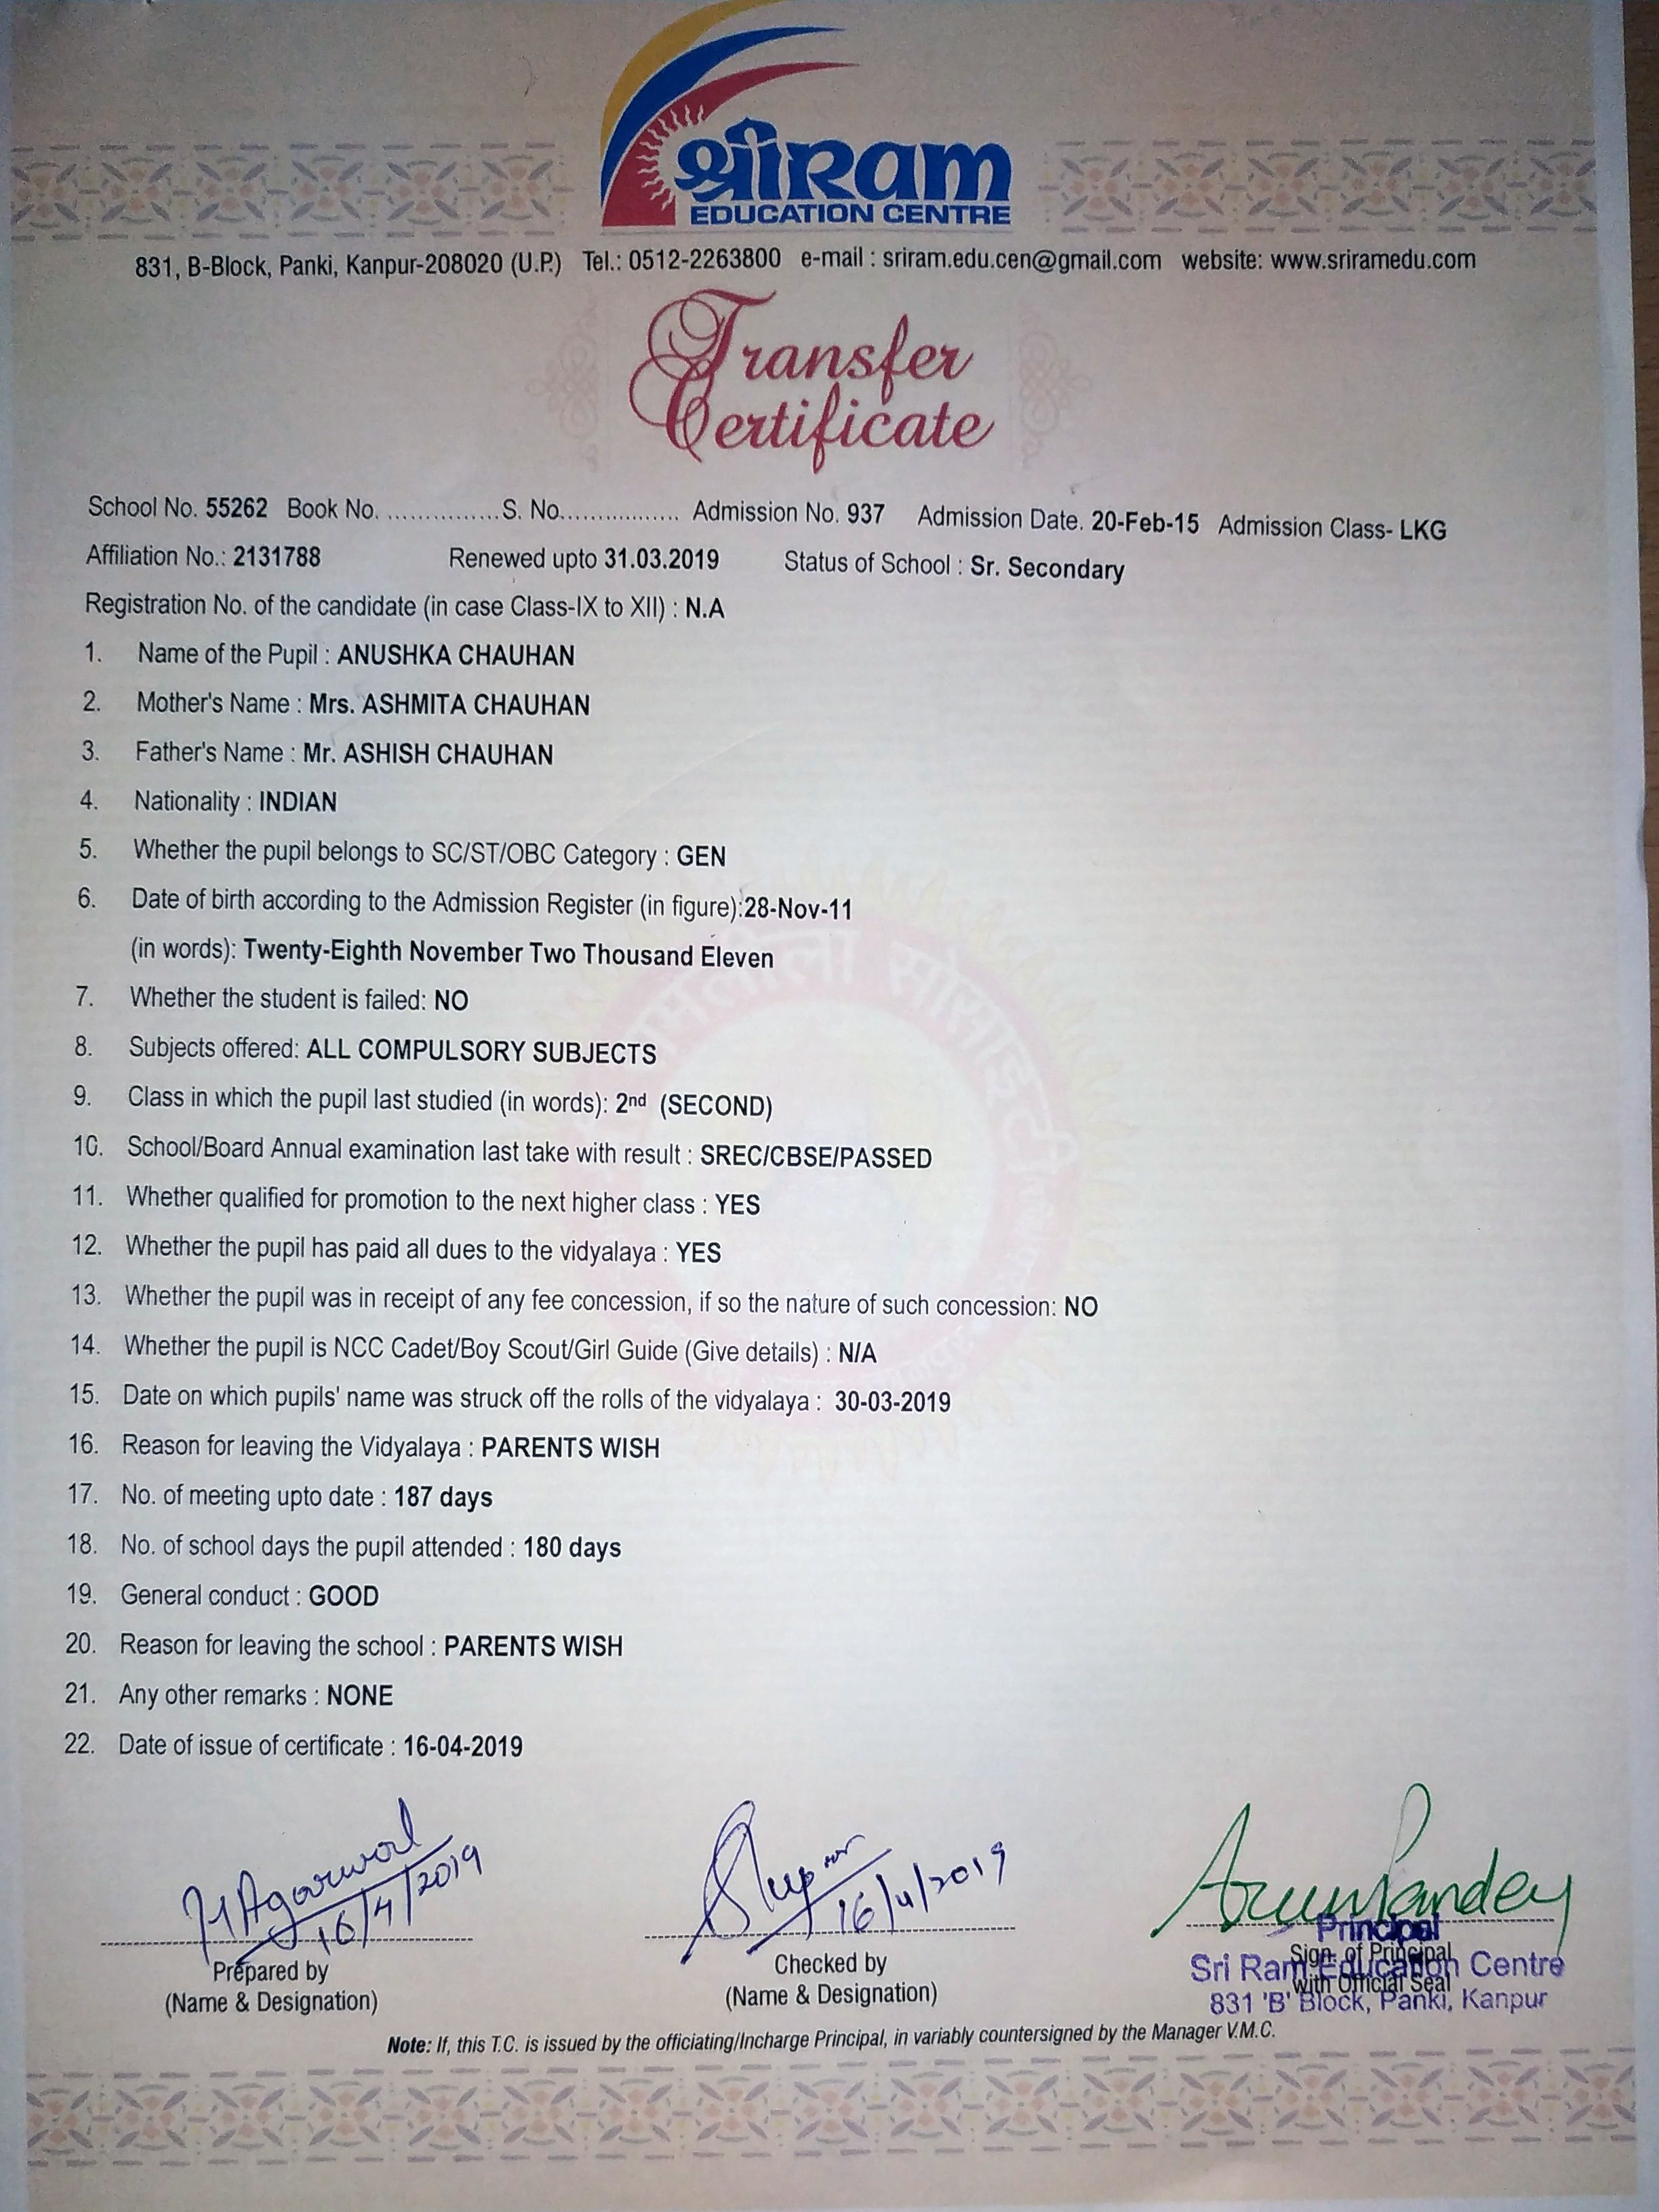 श्रीRam
EDUCATION CENTRE
831, B-Block, Panki, Kanpur-208020 (U.P.) Tel.: 0512-2263800 e-mail : sriram.edu.cen@gmail.com website: www.sriramedu.com
Transfer
Certificate
School No. 55262 Book No. ............... S. No................. Admission No. 937 Admission Date. 20-Feb-15 Admission Class- LKG
Affiliation No.: 2131788 Renewed upto 31.03.2019 Status of School : Sr. Secondary
Registration No. of the candidate (in case Class-IX to XII) : N.A
1. Name of the Pupil : ANUSHKA CHAUHAN
2. Mother's Name : Mrs. ASHMITA CHAUHAN
3. Father's Name : Mr. ASHISH CHAUHAN
4. Nationality : INDIAN
5. Whether the pupil belongs to SC/ST/OBC Category : GEN
6. Date of birth according to the Admission Register (in figure):28-Nov-11
(in words): Twenty-Eighth November Two Thousand Eleven
7. Whether the student is failed: NO
8. Subjects offered: ALL COMPULSORY SUBJECTS
9. Class in which the pupil last studied (in words): 2nd (SECOND)
10. School/Board Annual examination last take with result : SREC/CBSE/PASSED
11. Whether qualified for promotion to the next higher class : YES
12. Whether the pupil has paid all dues to the vidyalaya : YES
13. Whether the pupil was in receipt of any fee concession, if so the nature of such concession: NO
14. Whether the pupil is NCC Cadet/Boy Scout/Girl Guide (Give details) : N/A
15. Date on which pupils' name was struck off the rolls of the vidyalaya : 30-03-2019
16. Reason for leaving the Vidyalaya : PARENTS WISH
17. No. of meeting upto date : 187 days
18. No. of school days the pupil attended : 180 days
19. General conduct : GOOD
20. Reason for leaving the school : PARENTS WISH
21. Any other remarks : NONE
22. Date of issue of certificate : 16-04-2019
Agarwal Arun Pandey
16/4/2019 16/4/2019
Principal
Prepared by Checked by Sign. of Principal
Sri Ram Education Centre
(Name & Designation) (Name & Designation) with Official Seal
831 'B' Block, Panki, Kanpur
Note: If, this T.C. is issued by the officiating/Incharge Principal, in variably countersigned by the Manager V.M.C.